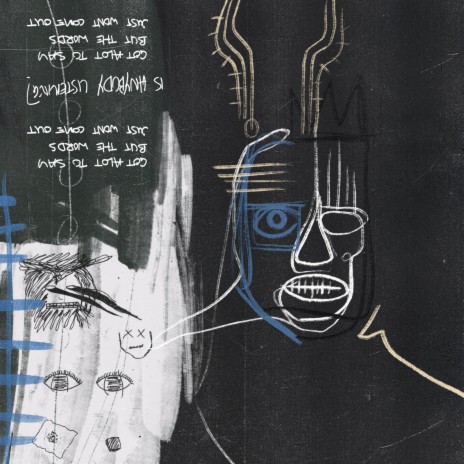 GOT ALOT TO SAY
BUT THE WORDS
JUST WONT COME OUT
IS ANYBODY LISTENING?
GOT ALOT TO SAY
BUT THE WORDS
JUST WONT COME OUT